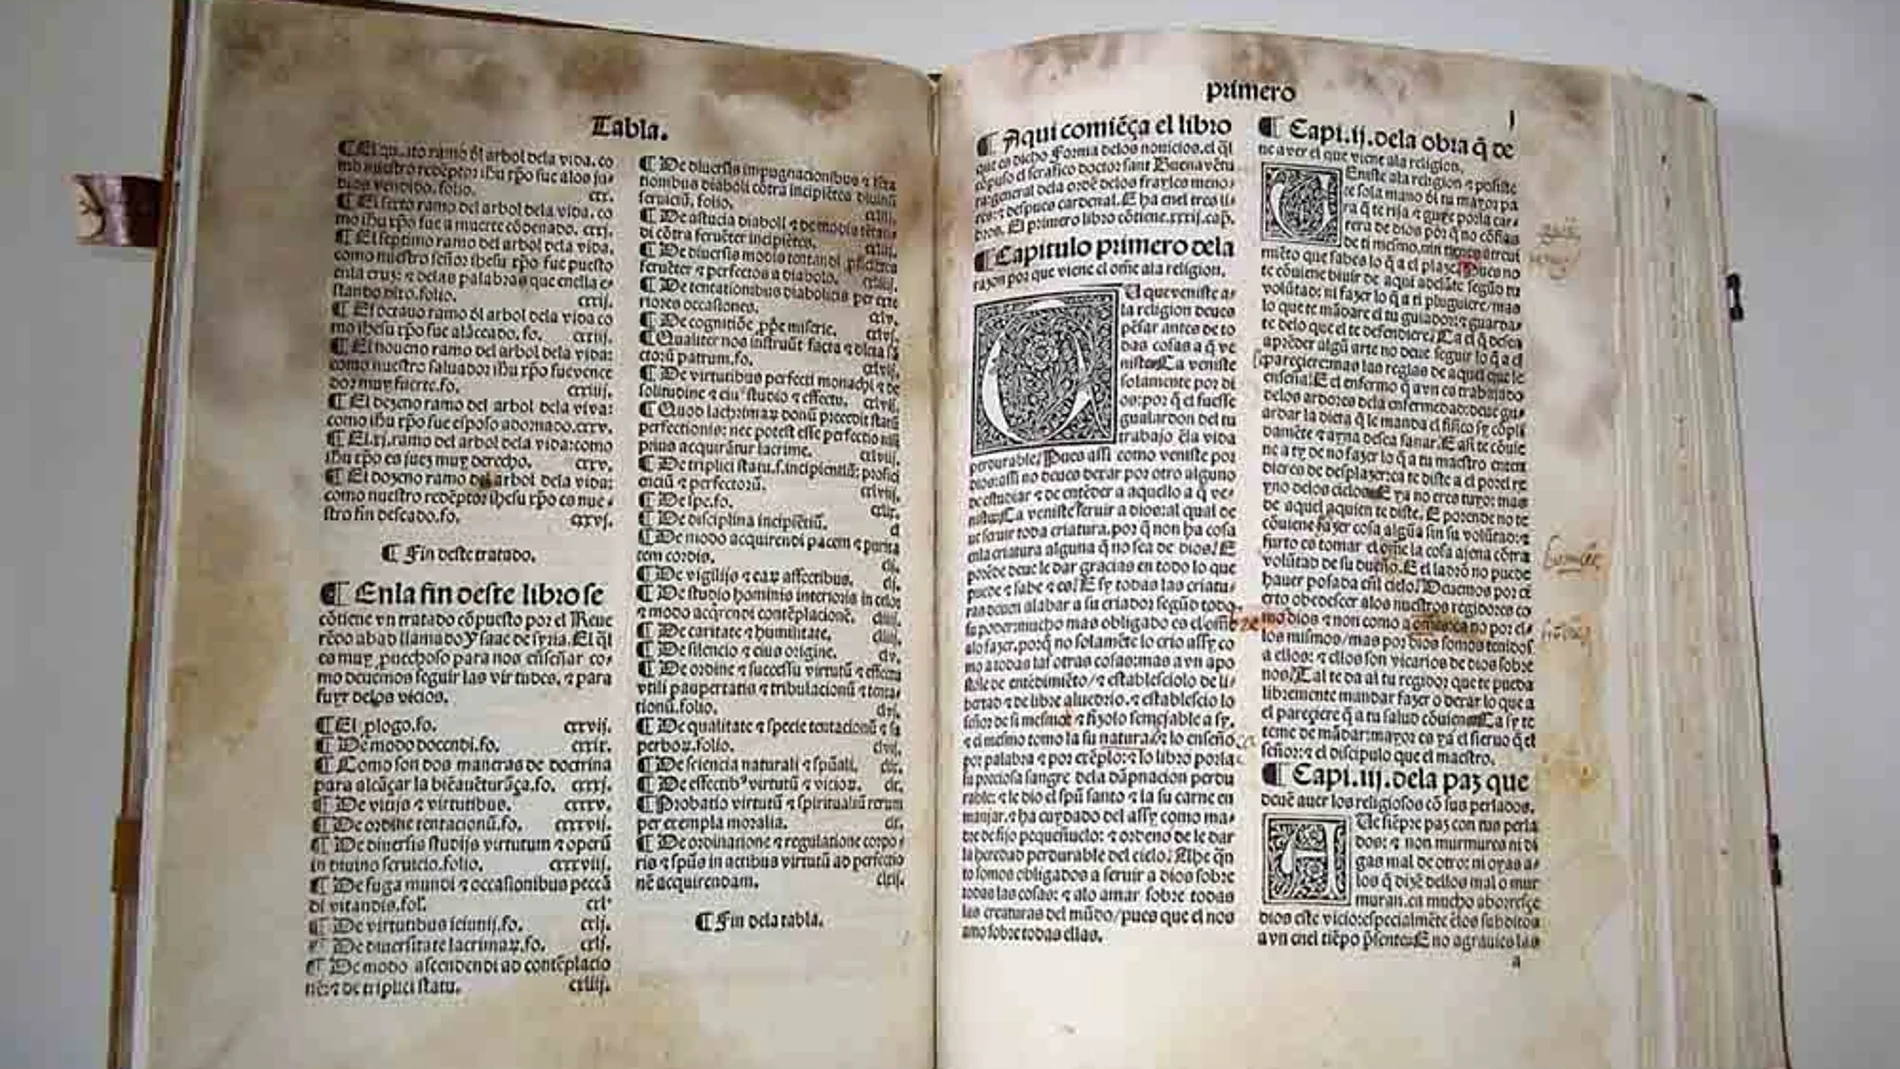 Tabla.
¶ El qu ito ramo ďl arbol dela vida. co
mo nuestro redēptor ihu xp̄o fue alos ju
dios vendido. folio. cxx.
¶ El sexto ramo del arbol dela vida. co
mo ihu xp̄o fue a muerte cōdenado. cxxj.
¶ El septimo ramo del arbol dela vida.
como nuestro señor ihesu xp̄o fue puesto
enla cruz: ⁊ delas palabras que enella e
stando dixo. folio. cxxij.
¶ El octauo ramo del arbol dela vida co
mo ihesu xp̄o fue alāceado. fo. cxxiij.
¶ El noueno ramo del arbol dela vida:
como nuestro saluador ihu xp̄o fue vence
dor muy fuerte. fo. cxxiiij.
¶ El dezeno ramo del arbol dela vida:
como ihu xp̄o fue esposo adornado. cxxv.
¶ El. xj. ramo del arbol dela vida: como
ihu xp̄o es juez muy derecho. cxxv.
¶ El dozeno ramo del arbol dela vida:
como nuestro redēptor ihesu xp̄o es nue
stro fin deseado. fo. cxxvj.
¶ Fin deste tratado.
¶ Enla fin deste libro se
cōtiene vn tratado cōpuesto por el Reue
rēdo abad llamado ysaac de syria. El q̄l
es muy puechoso para nos enseñar co
mo deuemos seguir las virtudes, ⁊ para
fuyr delos vicios.
¶ El plogo. fo. cxxvij.
¶ De modo docendi. fo. cxxix.
¶ Como son dos maneras de doctrina
para alcāçar la biēauēturāça. fo. cxxxj.
¶ De vitijs ⁊ virtutibus. cxxxv.
¶ De ordine tentacionū. fo. cxxxvij.
¶ De diuersis studijs virtutum ⁊ operū
in diuino seruicio. folio. cxxxviij.
¶ De fuga mundi ⁊ occasionibus peccā
di vitandis. fol. cxl.
¶ De virtutibus ieiunij. fo. cxlj.
¶ De diuersitate lacrimaꝝ. fo. cxlj.
¶ De modo ascendendi ad contēplacio
nē: ⁊ de triplici statu. cxliij.
¶ De diuersis impugnacionibus ⁊
tionibus diaboli cōtra incipiētes diuinū
seruiciū. folio.
¶ De astucia diaboli ⁊ de modis
di cōtra feruēter incipiētes.
¶ De diuersis modis tentandi
feruēter ⁊ perfectos a diabolo.
¶ De tentationibus diabolicis per
riores occasiones. cxlv.
¶ De cognitiōe ppe miserie. cxlvj.
¶ Qualiter nos instruūt facta ⁊ dicta sā
ctorū patrum. fo. cxlvij.
¶ De virtutibus perfecti monachi ⁊ de
solitudine ⁊ eius studio ⁊ effectu. cxlvij.
¶ Quod lachrimaꝝ donū precedit statū
perfectionis: nec potest esse perfectio nisi
prius acquirātur lacrime. cxlviij.
¶ De triplici statu. s. incipientiū: profici
enciū ⁊ perfectorū. cxlviij.
¶ De spe. fo. cxlix.
¶ De disciplina incipiētiū. cl
¶ De modo acquirendi pacem ⁊ purita
tem cordis. clj.
¶ De vigilijs ⁊ eaꝝ affectibus. clj.
¶ De studio hominis interioris in celos
⁊ modo acq̄rendi contēplacionē. cliij.
¶ De caritate ⁊ humilitate. cliiij.
¶ De silencio ⁊ eius origine. clv.
¶ De ordine ⁊ successu virtutū ⁊ effectu
vtili paupertatis ⁊ tribulacionū ⁊ tenta
tionū. folio. clvj.
¶ De qualitate ⁊ specie tentacionū ⁊ su
perboꝝ. folio. clvij.
¶ De sciencia naturali ⁊ spūali. clix.
¶ De effectib⁹ virtutū ⁊ vicioꝝ. clx.
¶ Probatio virtutū ⁊ spiritualiū rerum
per exempla moralia. clx.
¶ De ordinatione ⁊ regulatione corpo
ris ⁊ spūs in actibus virtutū ad perfectio
nē acquirendam. clxij.
¶ Fin dela tabla.
primero
j
¶ Aqui comiēça el libro
que es dicho Forma delos nouicios. el q̄l
cōpuso el serafico doctor sant Buenauētu
ra: general dela ordē delos frayles meno
res: ⁊ despues cardenal. E ha enel tres li
bros. El primero libro cōtiene. xxxij. cap̄.
¶ Capitulo primero dela
razon por que viene el om̄e ala religion.
O Tu que veniste a
la religion deues
pēsar antes de to
das cosas a q̄ ve
niste. Ca veniste
solamente por di
os: por q̄ el fuesse
gualardon del tu
trabajo ēla vida
perdurable. Pues assi como veniste por
dios: assi no deues dexar por otro alguno
de estudiar ⁊ de entēder a aquello a q̄ ve
niste. Ca veniste seruir a dios: al qual de
ue seruir toda criatura. por q̄ non ha cosa
enla criatura alguna q̄ no sea de dios. E
porēde deue le dar gracias en todo lo que
puede ⁊ sabe ⁊ es. E sy todas las criatu
ras deuen alabar a su criador segūo todo
su poder: mucho mas obligado es el om̄e
alo fazer. porq̄ no solamēte lo crio assy co
mo a todas las otras cosas: mas avn apo
stole de entēdimiēto/ ⁊ establesciolo de li
bertad ⁊ de libre aluedrio. ⁊ establescio lo
señor de si mesmo: ⁊ fizolo semejable a sy.
⁊ el mesmo tomo la su natura. ⁊ lo enseño
por palabra ⁊ por exēplo: ⁊ lo libro por la
su preciosa sangre dela dāpnacion perdu
rable: ⁊ le dio el spū santo ⁊ la su carne en
manjar. ⁊ ha cuydado del assy como ma
dre de fijo pequeñuelo: ⁊ ordeno de le dar
la heredad perdurable del cielo. Ahe q̄n
to somos obligados a seruir a dios sobre
todas las cosas: ⁊ alo amar sobre todas
las creaturas del mūdo/ pues que el nos
amo sobre todas ellas.
¶ Capi. ij. dela obra q̄ de
ue aver el que viene ala religion.
Veniste ala religion ⁊ posiste
te sola mano ďl tu mayor pa
ra q̄ te rija ⁊ guye por la car
rera de dios por q̄ no cōfias
de ti mesmo. nin tienes atreui
miēto que sabes lo q̄ a el plaze. Pues no
te cōuiene biuir de aqui adelāte segūo tu
volūtad: ni fazer lo q̄ a ti pluguiere/ mas
lo que te mādare el tu guiador: ⁊ guardar
te delo que el te defendiere. Ca el q̄ desea
aprēder algū arte no deue seguir lo q̄ a el
paresciere: mas las reglas de aquel que le
enseña. E el enfermo q̄ avn es trabajado
delos ardores dela enfermedad: deue gu
ardar la dieta q̄ le manda el fisico sy cōpli
damēte ⁊ ayna desea sanar. E assi te cōuie
ne a ty de no fazer lo q̄ a tu maestro enten
dieres de desplazer: ca te diste a el por el re
yno delos cielos. E ya no eres tuyo: mas
de aquel aquien te diste. E porende no te
cōuiene fazer cosa algūa sin su volūtad: ca
furto es tomar el om̄e la cosa ajena cōtra
volūtad de su dueño. E el ladrō no puede
hauer posada enl cielo. Deuemos por ci
erto obedescer alos nuestros regidores co
mo a dios ⁊ non como a om̄es: ca no por el
los mismos/ mas por dios somos tenidos
a ellos: ⁊ ellos son vicarios de dios sobre
nos. Tal te da al tu regidor que te pueda
libremente mandar fazer o dexar lo que a
el paresciere q̄ a tu salud cōuiene. Ca sy te
teme de mādar: mayor es ya el sieruo q̄ el
señor: ⁊ el discipulo que el maestro.
¶ Capi. iij. dela paz que
deuē auer los religiosos cō sus perlados.
Aue siēpre paz con tus perla
dos: ⁊ non murmures ni di
gas mal de otro: ni oyas a
los q̄ dizē dellos mal o mur
muran. ca mucho aborresçe
dios este vicio: especialmēte ēlos subditos
avn enel tiēpo p̄sente. E no agrauies las
a